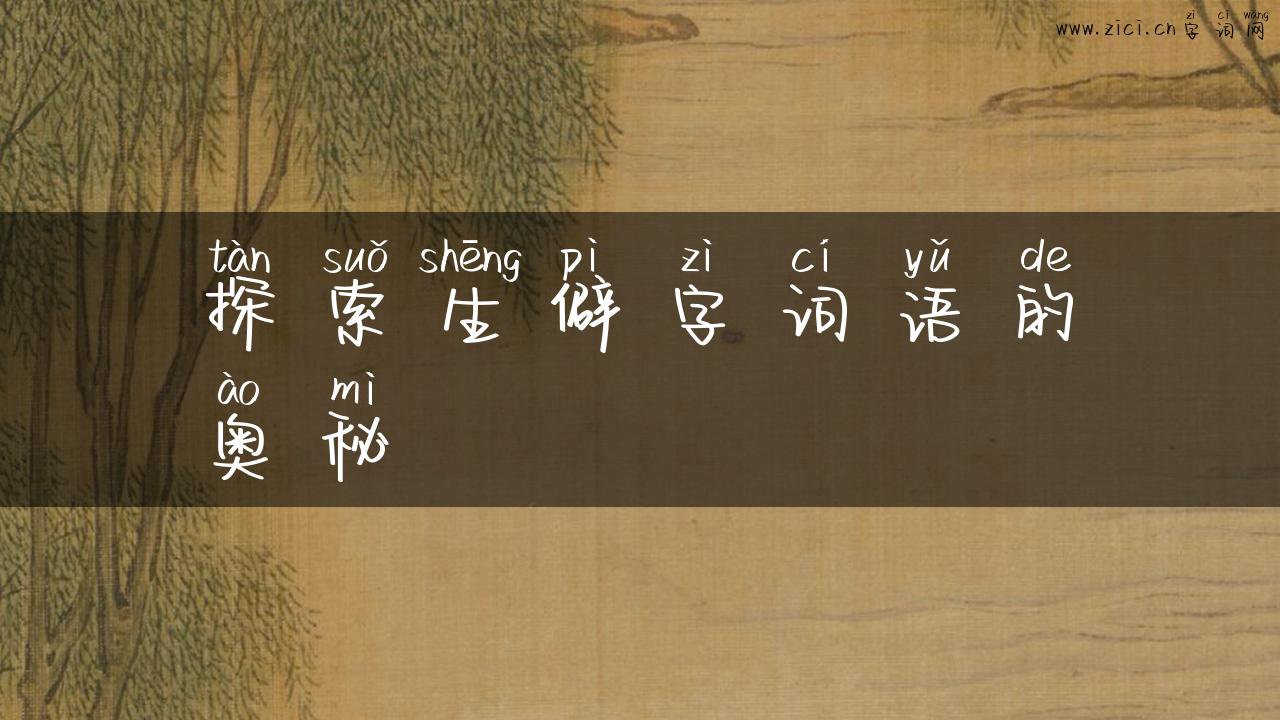 zì cí wǎng
www.zici.cn 字词网
tàn suǒ shēng pì zì cí yǔ de
探索生僻字词语的
ào mì
奥秘